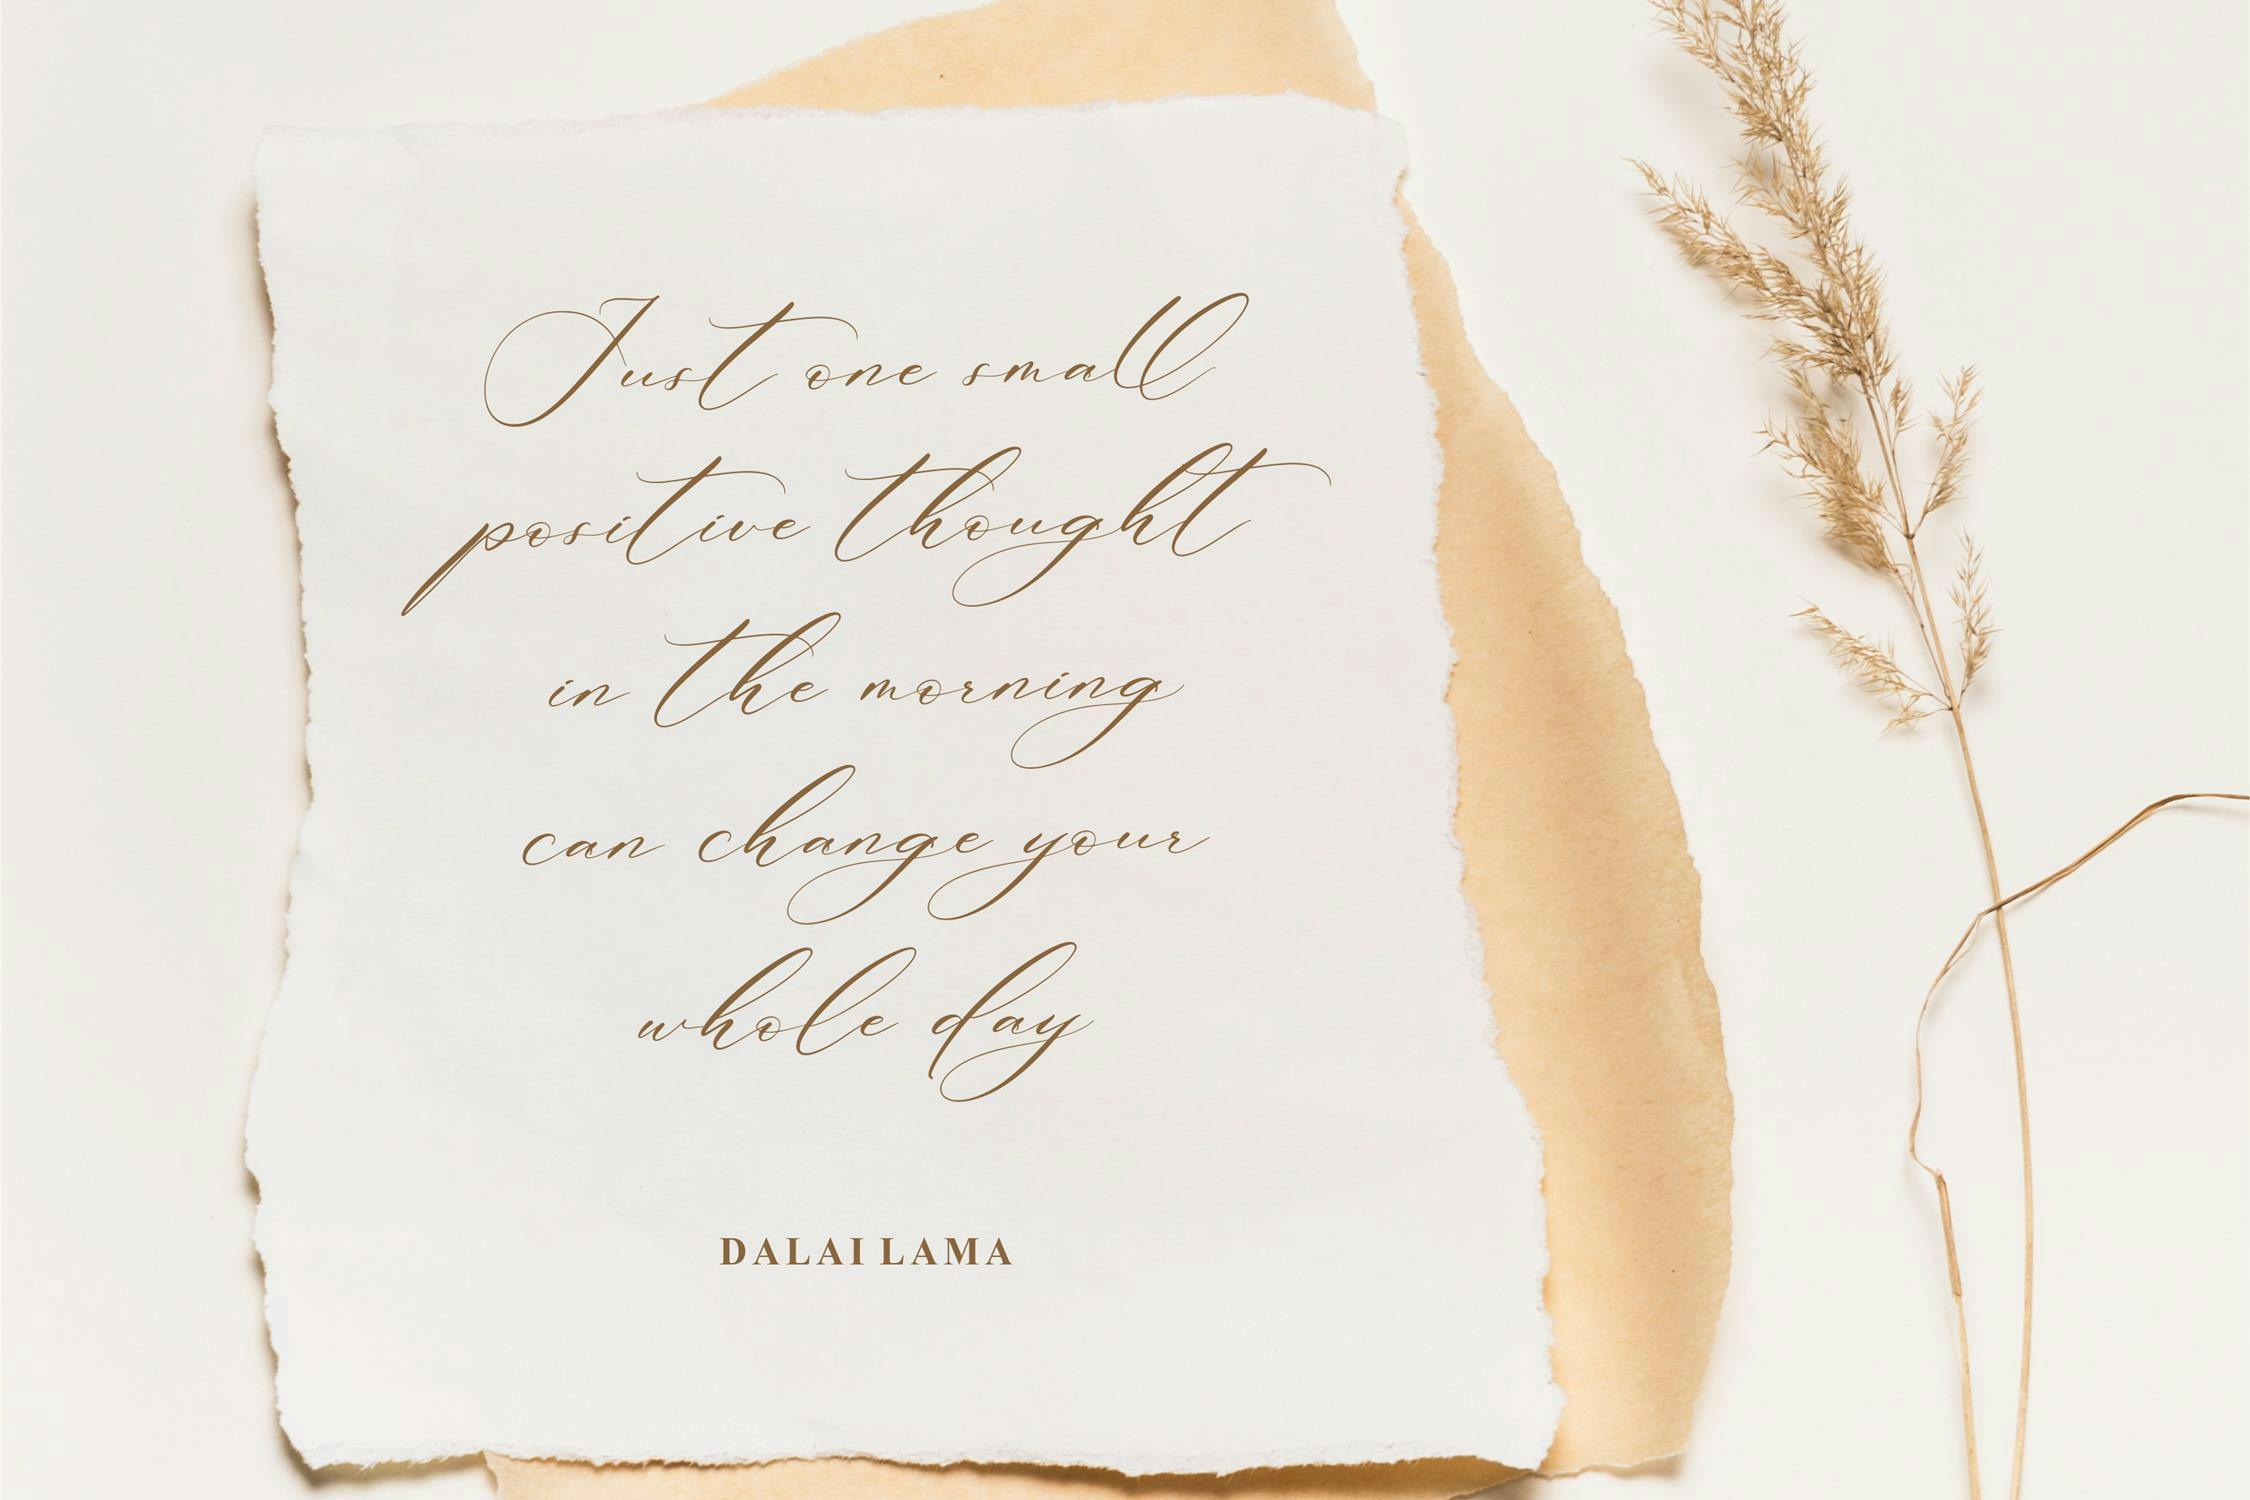 Just one small
positive thought
in the morning
can change your
whole day
DALAI LAMA